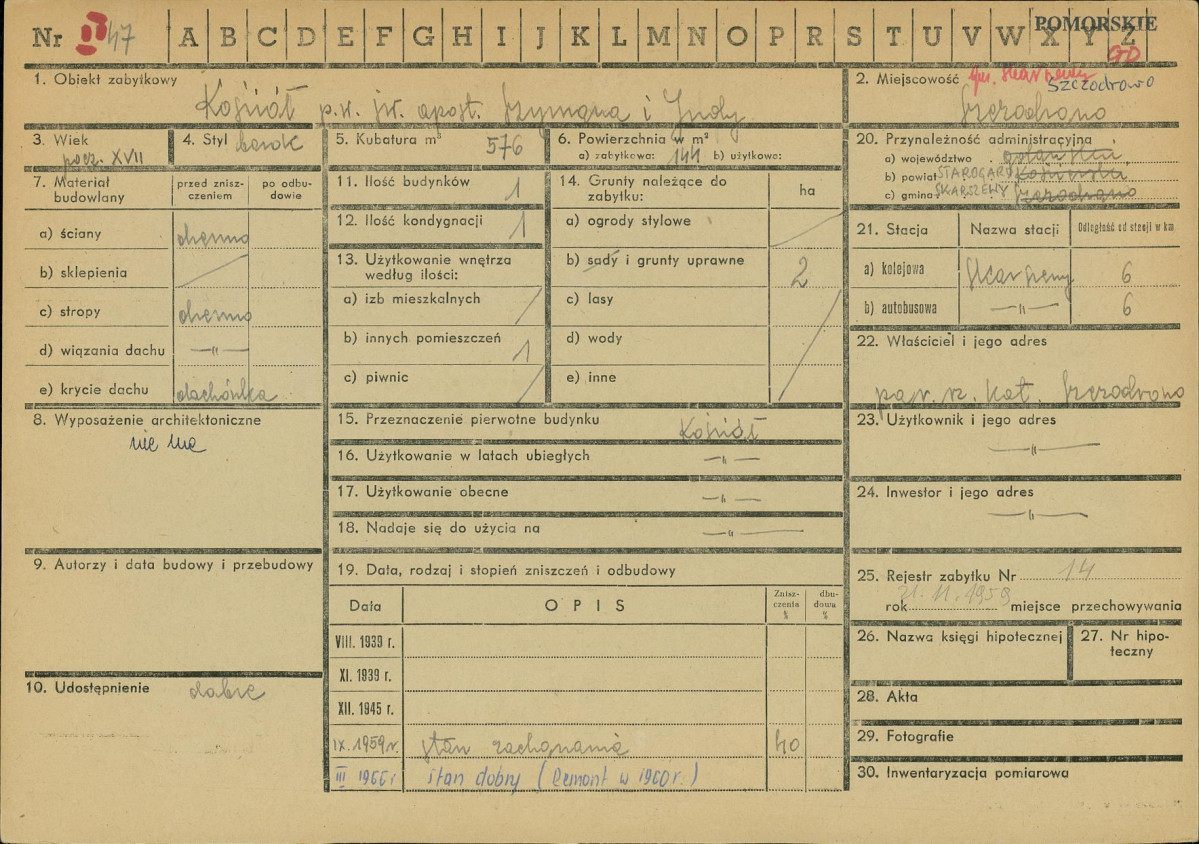 POMORSKIE
Nr II 47 A B C D E F G H I J K L M N O P R S T U V W X Y Z
GD
1. Obiekt zabytkowy
Kościół p.w. św. apost. Szymona i Judy
2. Miejscowość gm. Skarszewy
SZCZODROWO
Szczodrowo
3. Wiek
pocz. XVII
4. Styl barok
5. Kubatura m³ 576
6. Powierzchnia w m²
a) zabytkowa: 144 b) użytkowa:
20. Przynależność administracyjna
a) województwo . gdańskie
b) powiat STAROGARD kościerski
c) gmina SKARSZEWY Szczodrowo
7. Materiał budowlany
przed zniszczeniem
po odbudowie
a) ściany drewno
b) sklepienia
c) stropy drewno
d) wiązania dachu —"—
e) krycie dachu dachówka
11. Ilość budynków 1
12. Ilość kondygnacji 1
13. Użytkowanie wnętrza
według ilości:
a) izb mieszkalnych /
b) innych pomieszczeń 1
c) piwnic /
14. Grunty należące do
zabytku:
ha
a) ogrody stylowe
b) sady i grunty uprawne 2
c) lasy
d) wody
e) inne
21. Stacja Nazwa stacji Odległość od stacji w km
a) kolejowa Skarszewy 6
b) autobusowa —"— 6
22. Właściciel i jego adres
par. rz. kat. Szczodrowo
8. Wyposażenie architektoniczne
nie ma
15. Przeznaczenie pierwotne budynku Kościół
16. Użytkowanie w latach ubiegłych —"—
17. Użytkowanie obecne —"—
18. Nadaje się do użycia na —"—
23. Użytkownik i jego adres
—"—
24. Inwestor i jego adres
—"—
9. Autorzy i data budowy i przebudowy
19. Data, rodzaj i stopień zniszczeń i odbudowy
Data OPIS Zniszczenia % dbudowa %
VIII. 1939 r.
XI. 1939 r.
XII. 1945 r.
IX. 1959 r. stan zachowania 40
III 1966 r stan dobry (Remont w 1960 r.)
25. Rejestr zabytku Nr 14
rok 21. 11. 1959 miejsce przechowywania
26. Nazwa księgi hipotecznej
27. Nr hipoteczny
10. Udostępnienie dobre
28. Akta
29. Fotografie
30. Inwentaryzacja pomiarowa